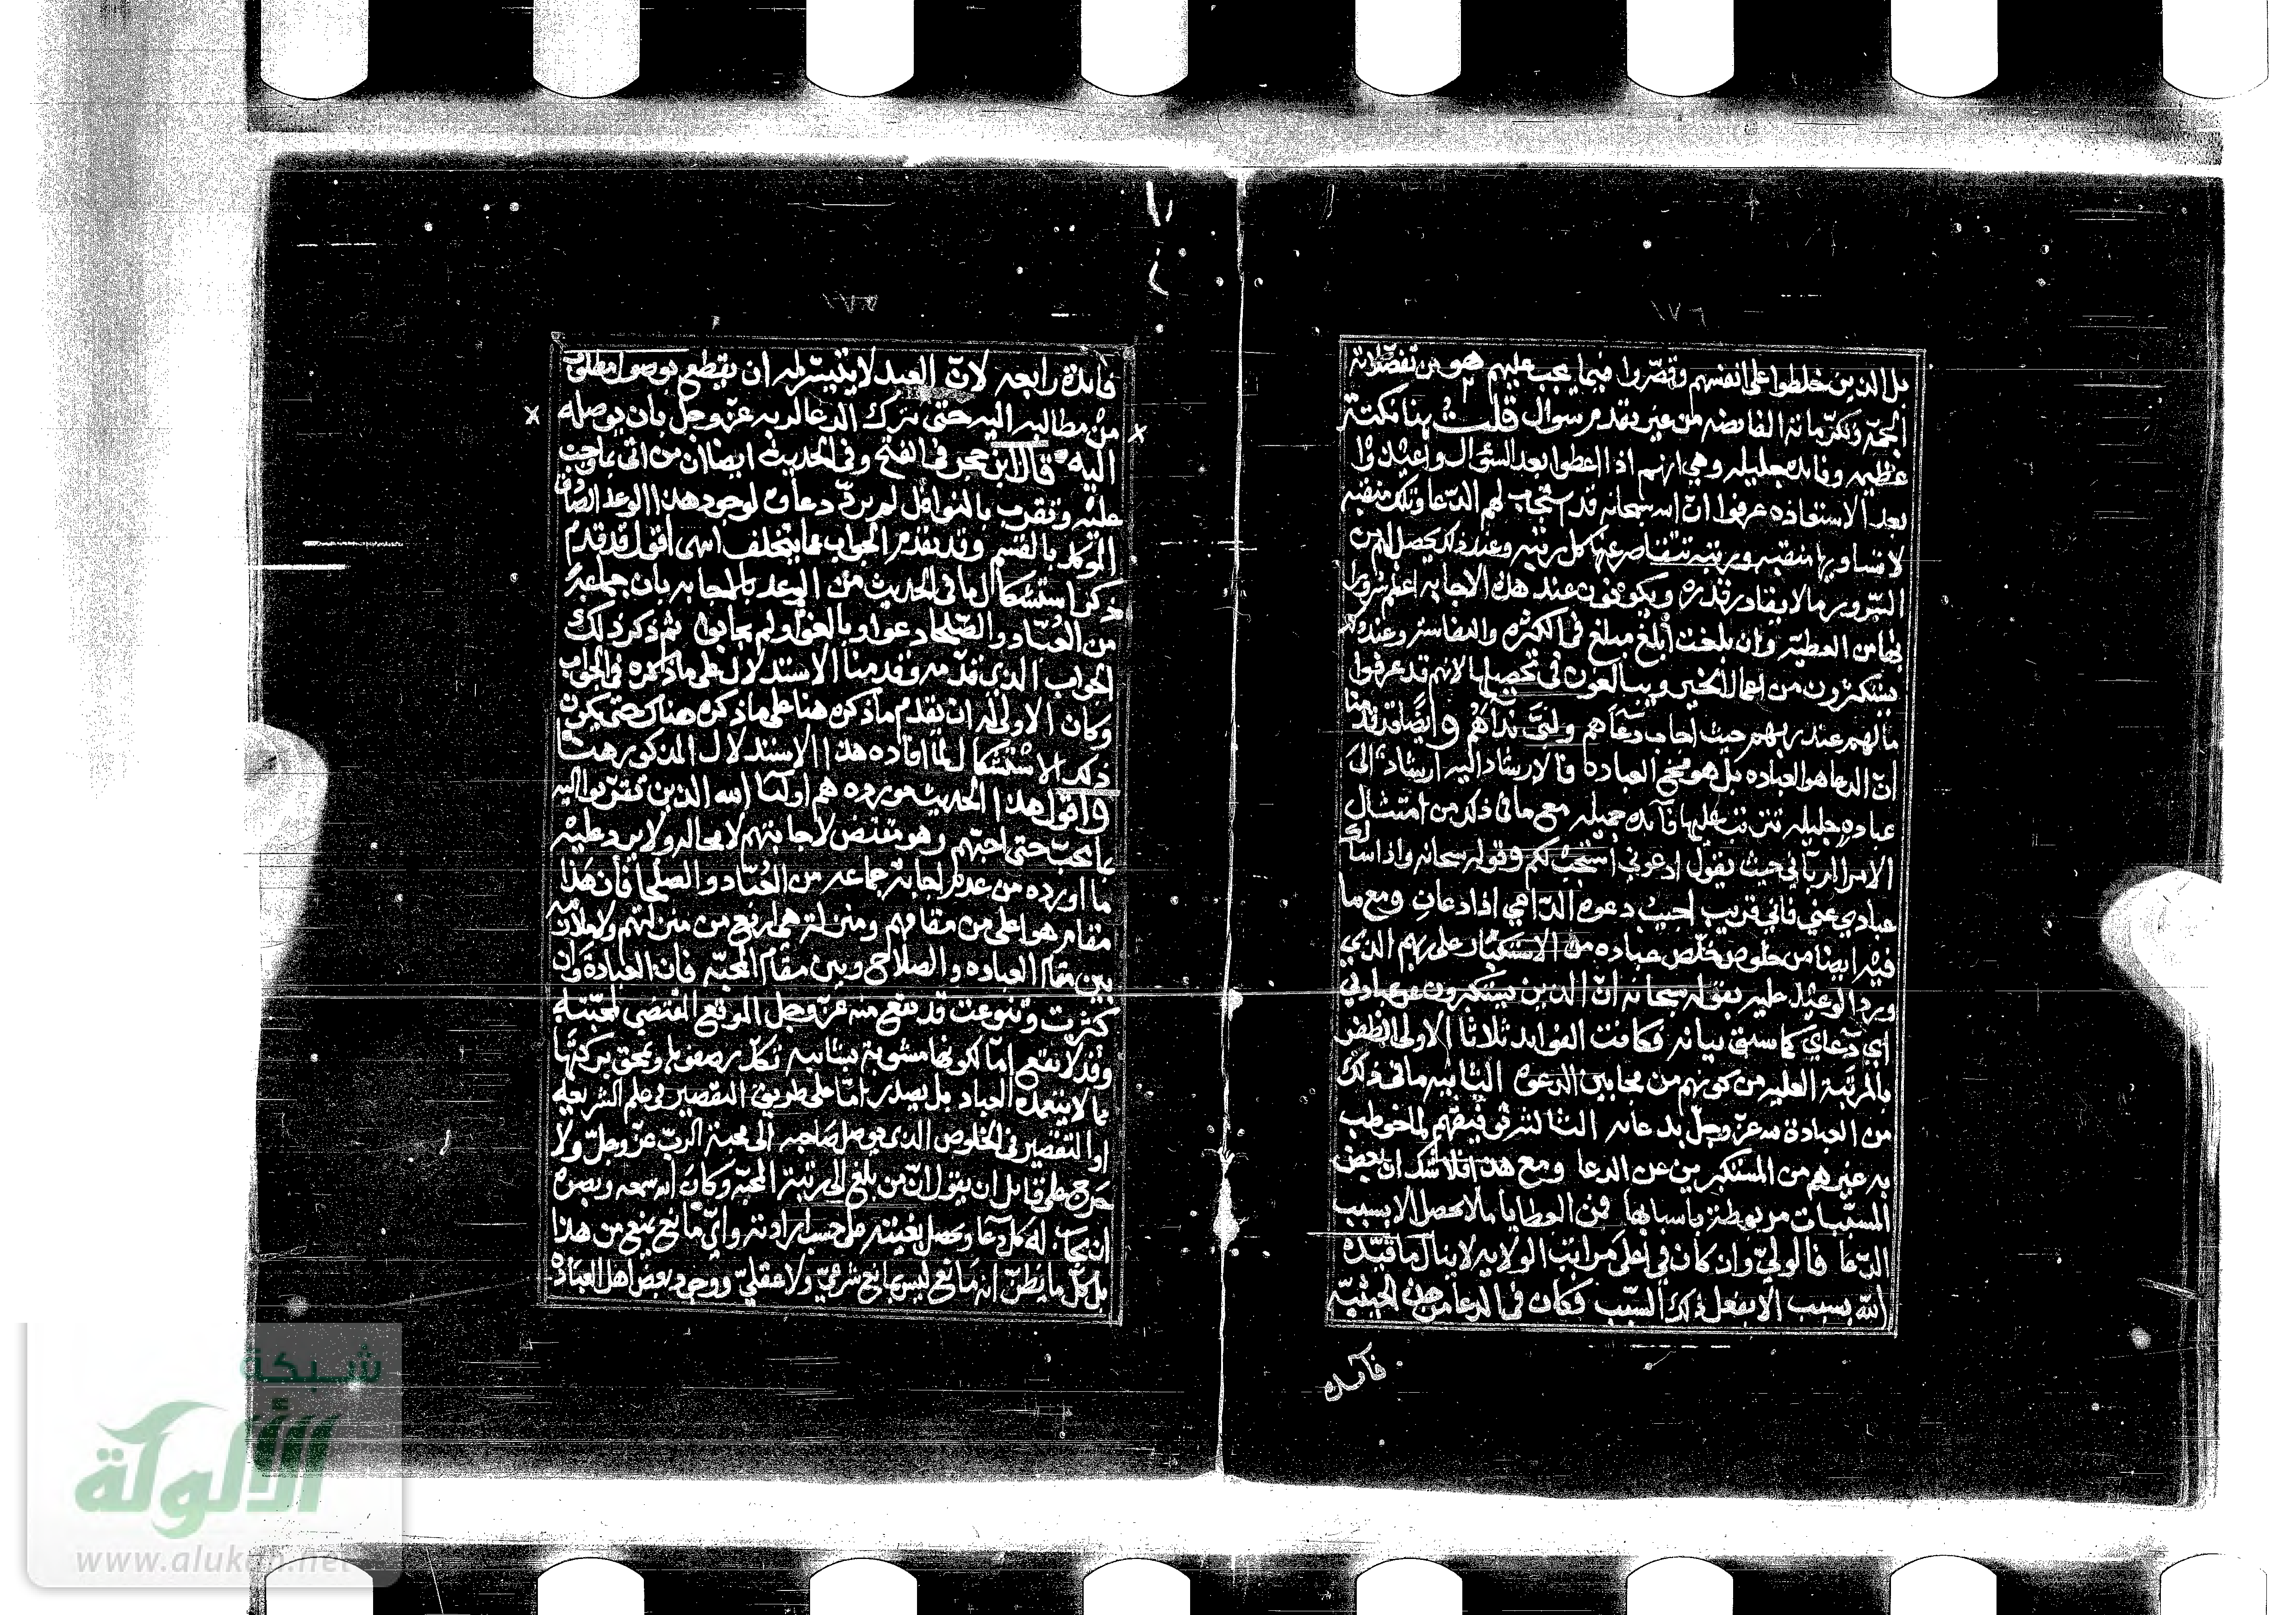 ١٧٦
بل الذين خلطوا على انفسهم وقصّروا فيما يجب عليهم هو من تفضّلاته
الجمّة وتكرّماته الفائضه من غير تقدم سوال قلت هنا نكتة
عظيمه وفايده جليله وهي انهم اذا اعطوا بعد السؤال واعيذوا
بعد الاستعاذه عرفوا انّ الله سبحانه قد استجاب لهم الدّعا وتلك منقبه
لا تساويها منقبه ومرتبه تتقاصر عنها كل رتبه وعند ذلك يحصل لهم من
السّرور ما لا يقادر قدره ويكونون عند هذه الاجابه اعظم سرورا
بها من العطيّه وان بلغت أبلغ مبلغ في الكثره والنفاسه وعند
يستكثرون من اعمال الخير ويبالغون في تحصيلها لانهم قد عرفوا
ما لهم عند ربهم حيث اجاب دعآهم ولبّى نداهُم وايضًا قد قدمنا
انّ الدعا هوالعباده بل هو مخ العباده فالارشاد اليه ارشاد الى
عبادةٍ جليله تترتب عليها فآئده جميله مع ما في ذلك من امتثال
الامر الربّاني حيث يقول ادعوني استجب لكم وقوله سبحانه واذا سالك
عبادي عني فاني قريب اجيب دعوه الدّاعي اذا دعان ومع ما
فيه ايضا من خلوص خلّص عباده من الاستكبار على ربهم الذي
ورد الوعيد عليه بقوله سبحانه انّ الذين يستكبرون عن عبادتي
اي دعآي كما سبق بيانه فكانت الفوايد ثلاثا الاولى الظفر
بالمرتبة العليه من كونهم من مجابين الدعوه الثانيه ما في ذلك
من العبادة لله عزّ وجلّ بدعائه الثالثه توقّيهم لما خوطب
به غيرهم من المستكبرين عن الدعا ومع هذا فلا شك ان بعض
المسبّبات مربوطة باسبابها فمن العطايا ما لا يحصل الا بسبب
الدّعا فالوليّ وان كان في اعلى مراتب الولايه لا ينال ما قيّده
الله بسبب الا بفعل ذلك السّبب فكان في الدعا من هذه الحيثيّه
فآئده
فايدة رابعه لانّ العبد لا يتيسّر له ان يقطع بوصول مطلوب
من مطالبه اليه حتى يترك الدعا لربه عزّ وجلّ بان يوصله
اليه قال ابن حجر في الفتح وفي الحديث ايضا ان من اتى بما وجب
عليه وتقرب بالنوافل لم يردّ دعاؤه لوجود هذا الوعد الصادق
الموكد بالقسم وقد تقدم الجواب عما يتخلف انتهى اقول قد قدّم
ذكر استشكال ما في الحديث من الوعد بالاجابه بان جماعة
من العبّاد والصّلحا دعوا وبالغوا ولم يجابوا ثم ذكر ذلك
الجواب الذي قدّمه وقدمنا الاستدلال على ما ذكره في الجواب
وكان الاولى له ان يقدم ما ذكره هنا على ما ذكره هناك حتى يكون
ذلك الاستشكال لما افاده هذا الاستدلال المذكور هنا
واقول هذا الحديث مورده هم اوليآ الله الذين تقرّبوا اليه
بما يحبّ حتى احبّهم وهو مقتض لاجابتهم لا محاله ولا يرد عليه
ما اورده من عدم اجابة جماعه من العُبّاد والصلحا فان هذا
مقام هو اعلى من مقامهم ومنزلة هي ارفع من منزلتهم ولا ملازمه
بين مقام العباده والصلاح وبين مقام المحبّه فان العبادة وان
كثرت وتنوعت قد تقع منه عزّ وجل الموقع المقتضي لمحبّته
وقد لا تقع امّا لكونها مشوبة بشائبه تكدّر صفوها ويمحق بركتها
مما لا يتعمده العباد بل يصدر امّا على طريق التقصير في علم الشريعه
او التقصير في الخلوص الذي يوصل صاحبه الى محبة الربّ عزّ وجلّ ولا
حرج على قايل ان يقول انّ من بلغ الى رتبة المحبّه وكان الله سمعه وبصره
ان يجاب له كل دعآ ويحصل بغيته على حسب ارادته وايّ مانع يمنع من هذا
بل كلّ ما يظنّ انه مَانع ليس بمانع شرعيّ ولا عقليّ ووجود بعض اهل العباده
شبكة
الألوكة
www.alukah.net